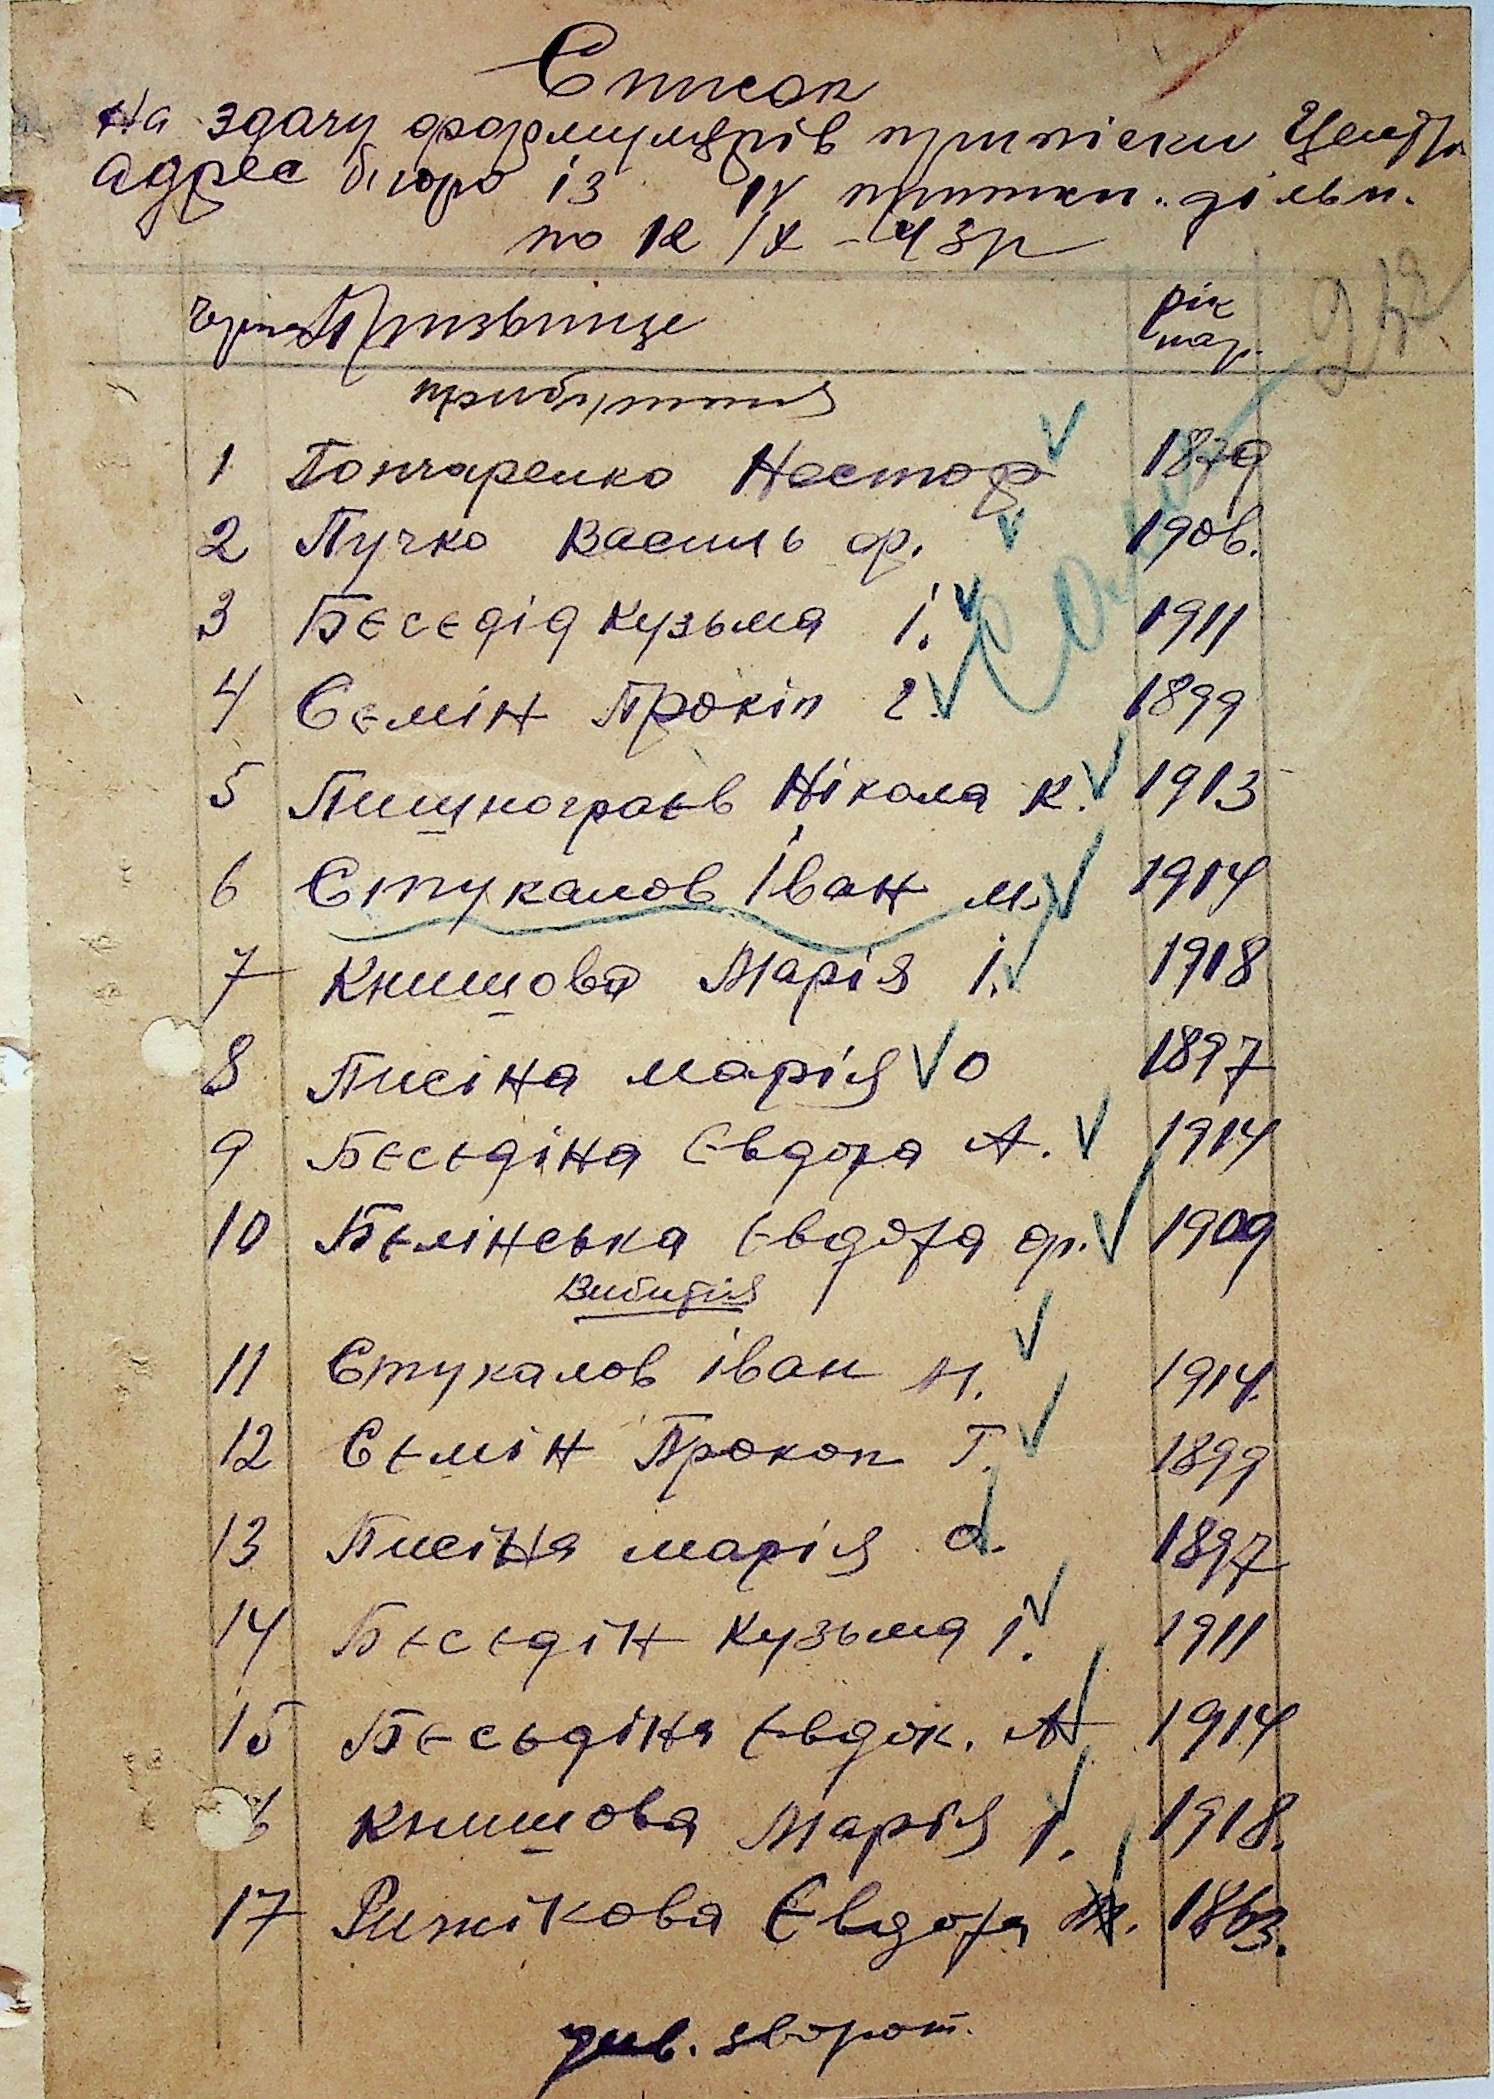 Список
На здачу формулярів приписки Центр.
адрес бюро із IV припис. дільн.
по 12/X – 43р
Прізвище рік нар.
прибуття
1 Гончаренко Нестор 1879
2 Пучко Василь ф. 1906.
3 Бєсєдід Кузьма І. 1911
4 Сємін Прокіп г. 1899
5 Пишнограєв Нікола К. 1913
6 Стукалов Іван М. 1914
7 Книшова Марія І. 1918
8 Писіна Марія О 1897
9 Бєсєдіна Євдоха А. 1914
10 Бєлінська Євдоха ф. 1909
Вибуття
11 Стукалов Іван М. 1914.
12 Сємін Прокоп Г. 1899
13 Писіна Марія О. 1897
14 Бєсєдін Кузьма І. 1911
15 Бєсьдіна Євдок. А 1914
6 Книшова Марія І. 1918.
17 Рижікова Євдоха 1863.
див. зворот.